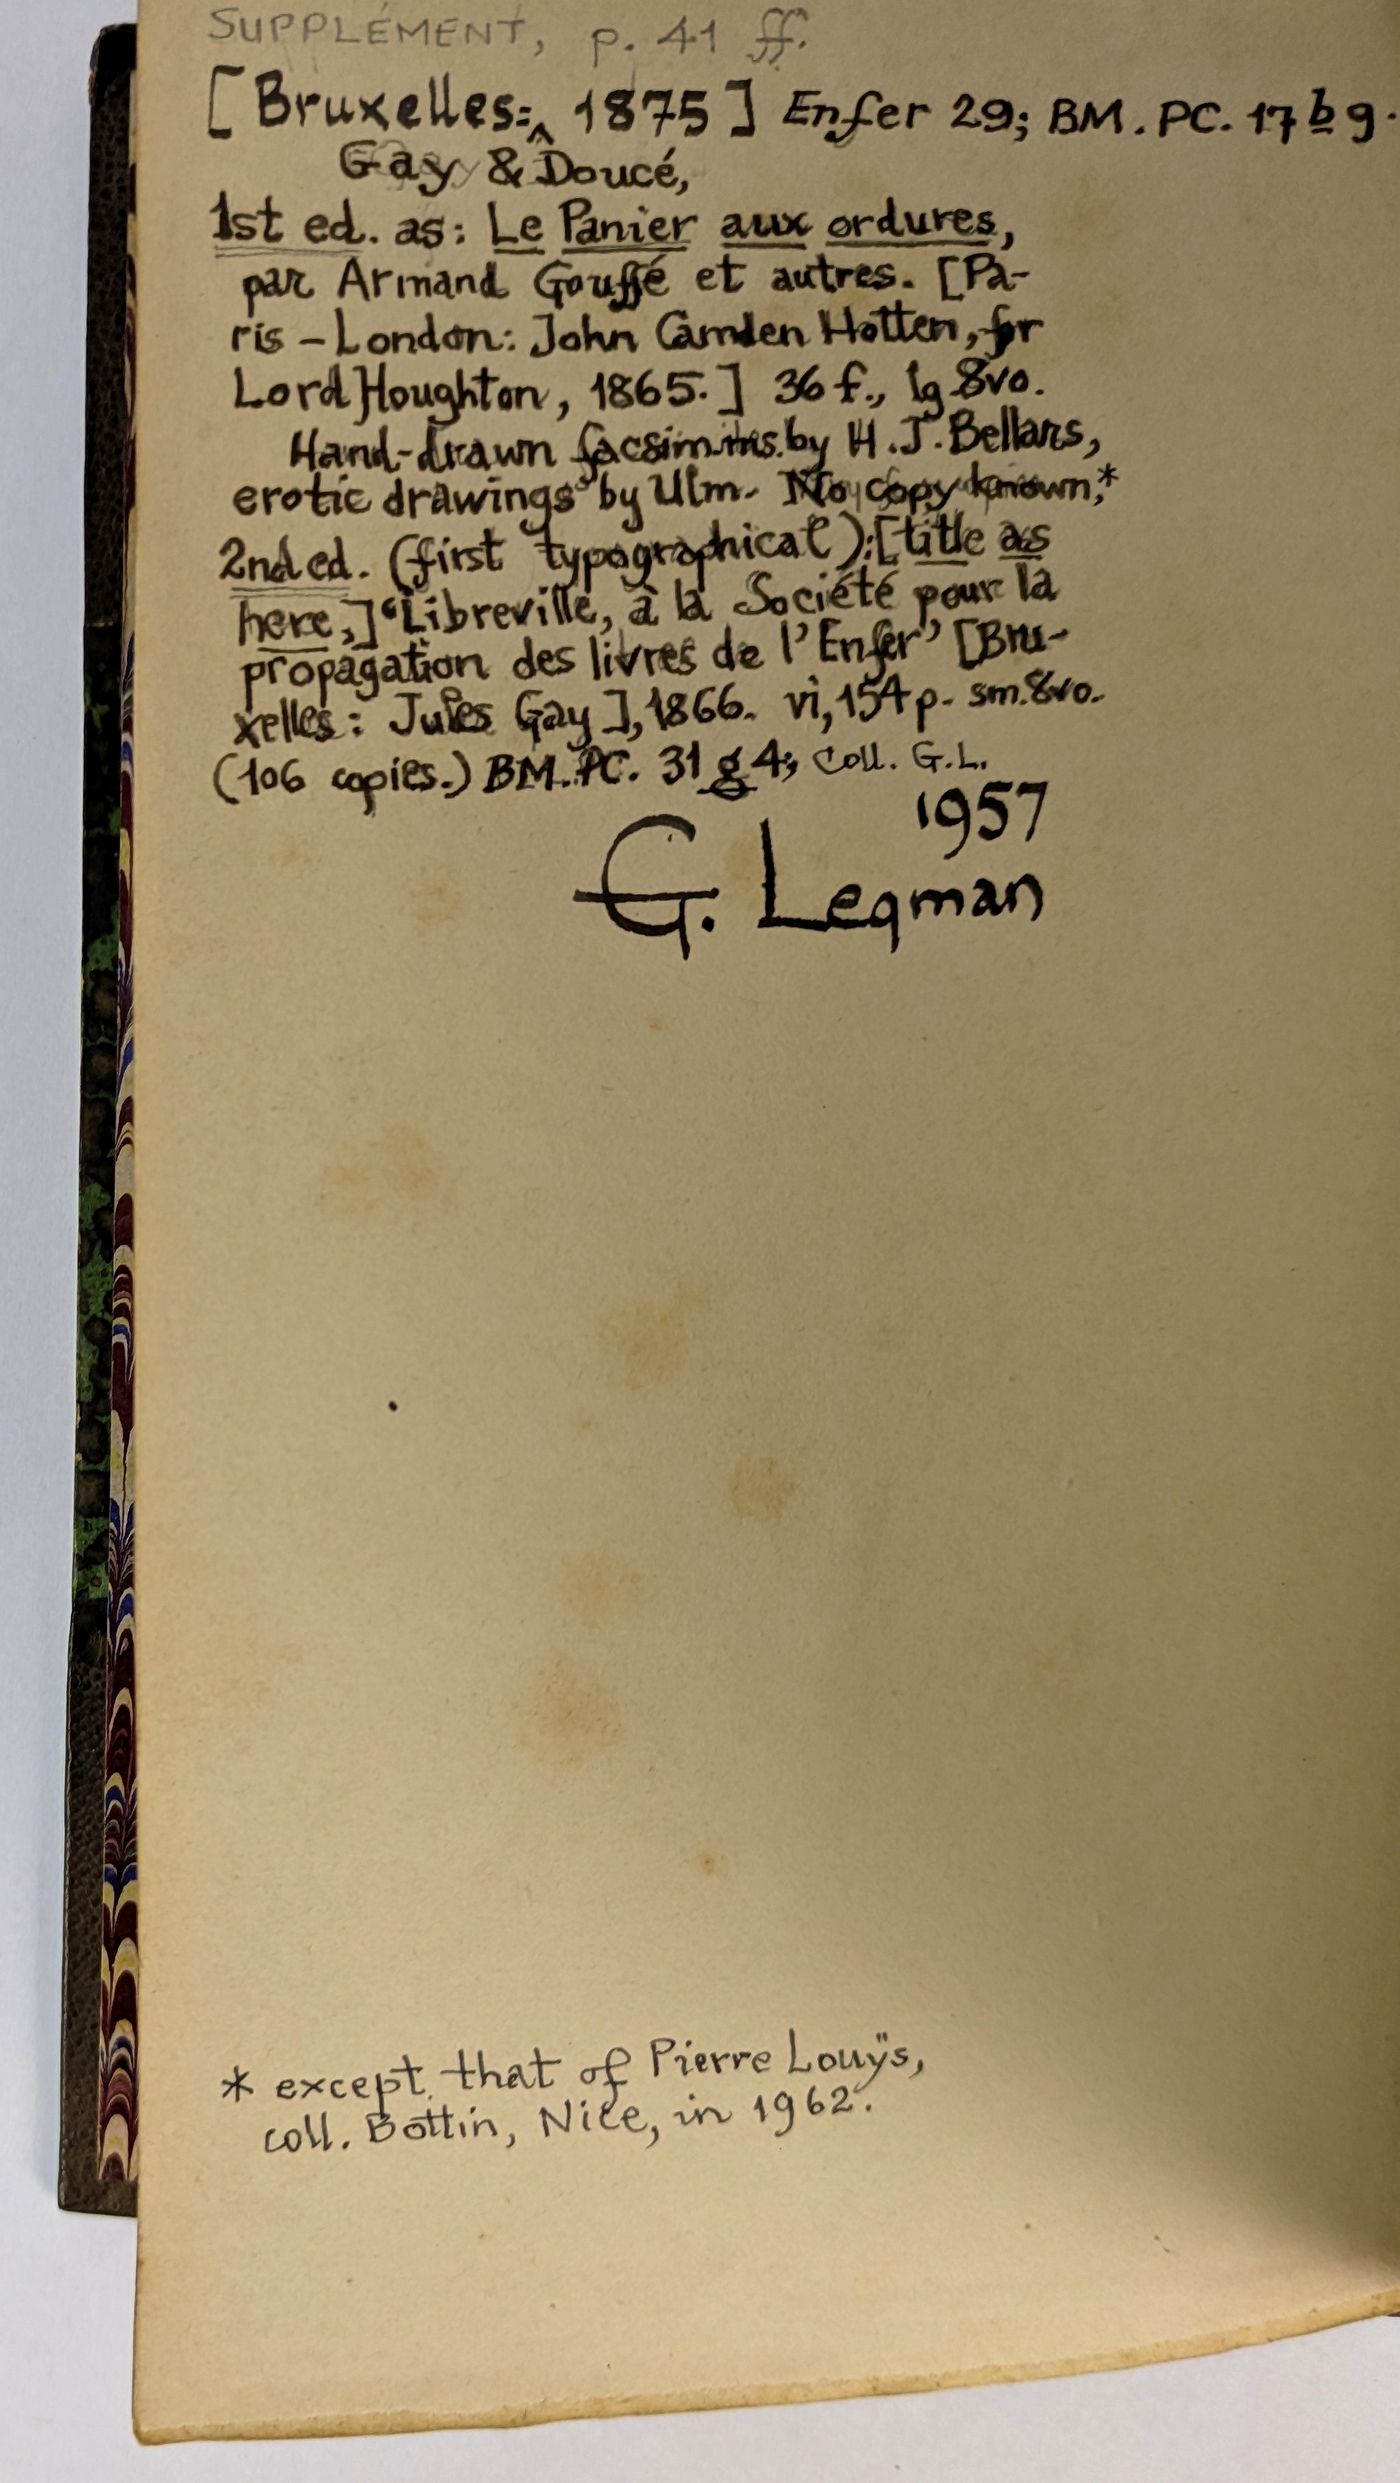 SUPPLÉMENT, p. 41 ff.
[Bruxelles: ^ 1875] Enfer 29; BM. PC. 17 b 9.
Gay & Doucé,
1st ed. as: Le Panier aux ordures,
par Armand Gouffé et autres. [Pa-
ris – London: John Camden Hotten, for
Lord Houghton, 1865.] 36 f., lg 8vo.
Hand-drawn by H. J. Bellars,
erotic drawings by Ulm. No copy known,*
2nd ed. (first typographical): [title as
here,] ‘Libreville, à la Société pour la
propagation des livres de l’Enfer’ [Bru-
xelles: Jules Gay], 1866. vi, 154 p. sm. 8vo.
(106 copies.) BM. PC. 31 g 4; coll. G.L.
1957
G. Legman
* except that of Pierre Louÿs,
coll. Bottin, Nice, in 1962.